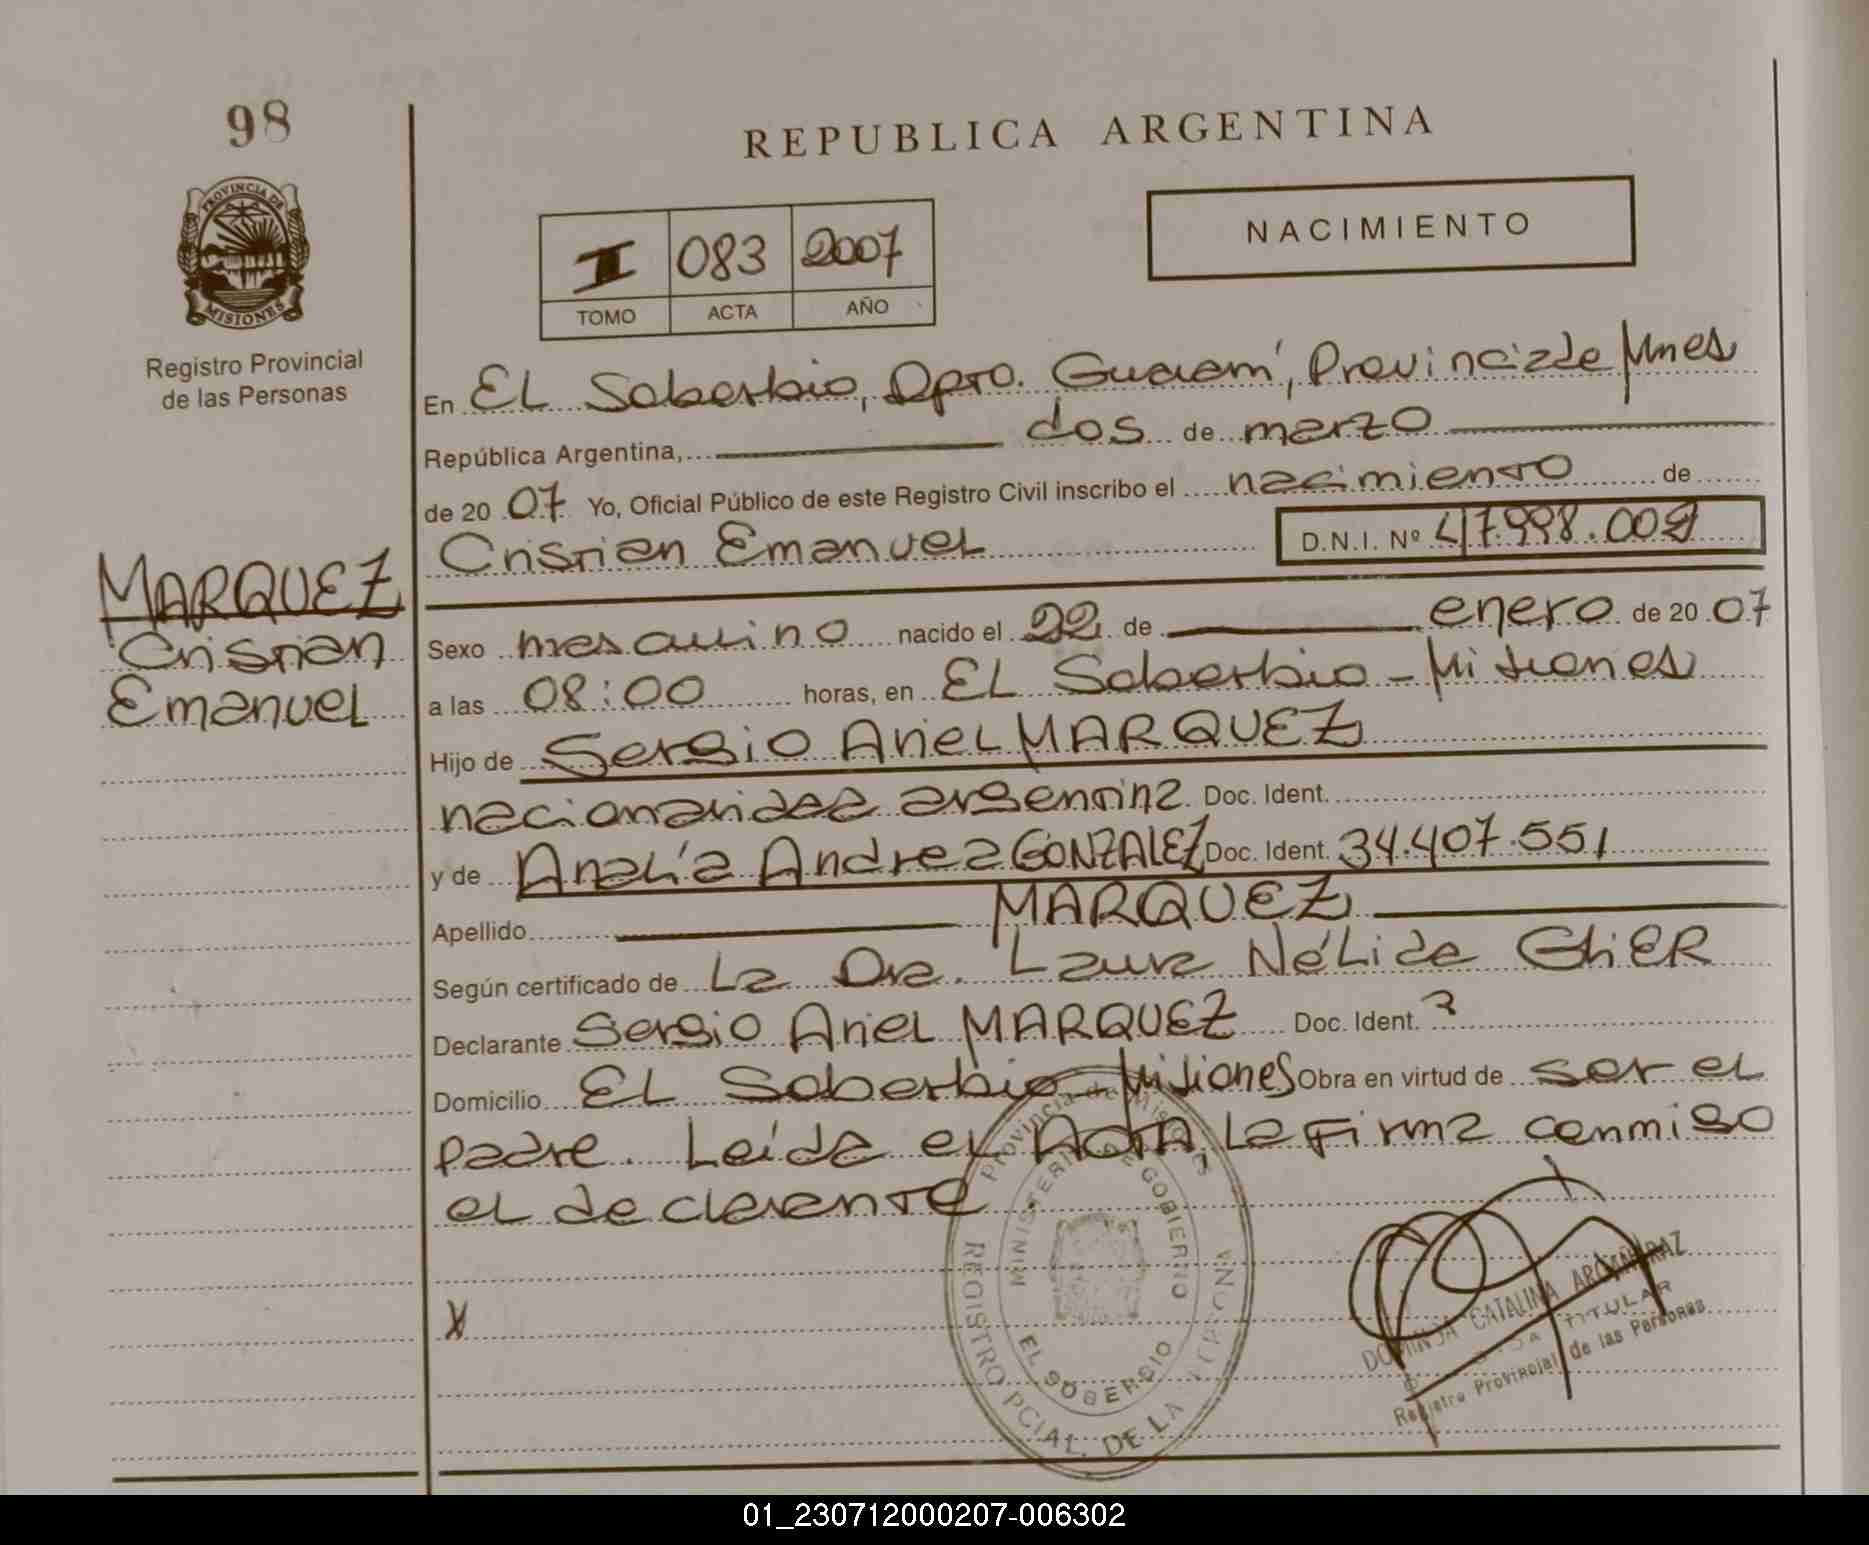 98
REPUBLICA ARGENTINA
PROVINCIA DE
MISIONES
Registro Provincial
de las Personas
I 083 2007
TOMO ACTA AÑO
NACIMIENTO
En EL Soberbio, Dpto. Guaraní, Provincia de Mnes
República Argentina, dos de marzo
de 2007 Yo, Oficial Público de este Registro Civil inscribo el nacimiento de
Cristian Emanuel D.N.I. Nº 47.998.002
MARQUEZ
Cristian
Emanuel
Sexo masculino nacido el 22 de enero de 2007
a las 08:00 horas, en EL Soberbio - Misiones
Hijo de Sergio Ariel MARQUEZ
nacionalidad argentina Doc. Ident.
y de Analía Andrea GONZALEZ Doc. Ident. 34.407.551
Apellido MARQUEZ
Según certificado de La Dra. Laura Nélida
Declarante Sergio Ariel MARQUEZ Doc. Ident.
Domicilio EL Soberbio - Misiones Obra en virtud de ser el
padre. Leída el Acta, La Firma conmigo
el declarante
X
Provincia de Misiones
MINISTERIO DE GOBIERNO
EL SOBERBIO
REGISTRO PCIAL. DE LA
CATALINA
TITULAR
Registro Provincial de las Personas
01_230712000207-006302